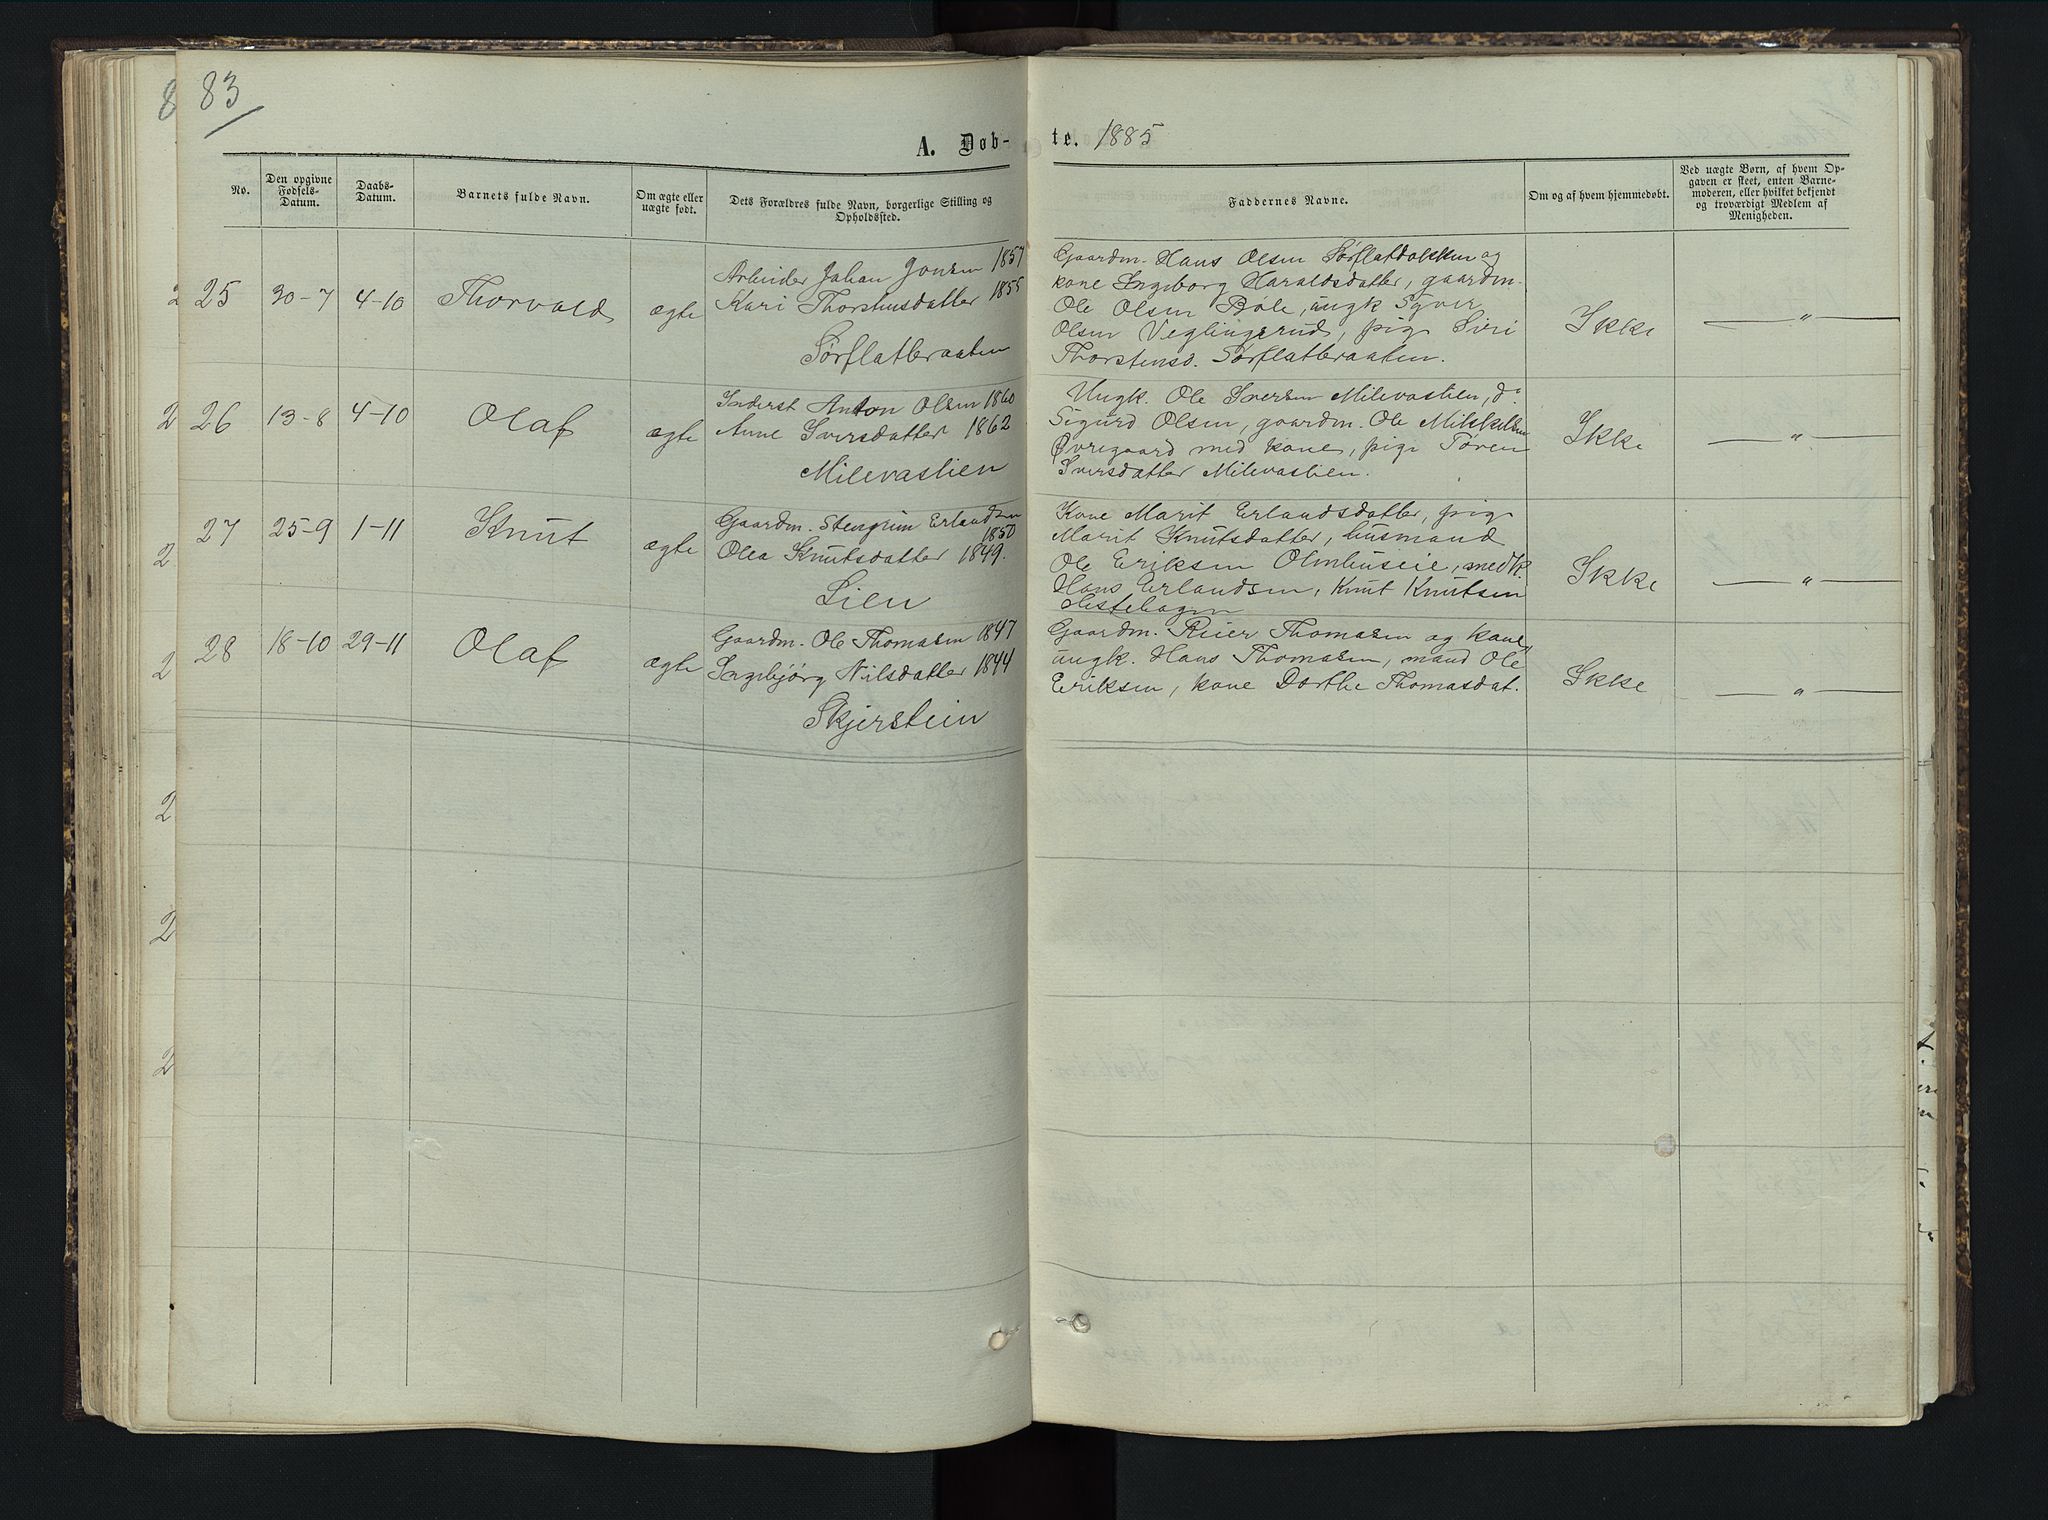 83
A. Døb-
te. 1885
No.
Den opgivne Fødsels-Datum.
Daabs-Datum.
Barnets fulde Navn.
Om ægte eller uægte født.
Dets Forældres fulde Navn, borgerlige Stilling og Opholdssted.
Faddernes Navne.
Om og af hvem hjemmedøbt.
Ved uægte Børn, af hvem Op-
gaven er skeet, enten Barne-
moderen, eller hvilket bekjendt
og troværdigt Medlem af
Menigheden.
25 30-7 4-10 Thorvald ægte
Arbeider Johan Jonsen 1857
Kari Thorstensdatter 1855
Sørflatbraaten
Gaardm. Hans Olsen Sørflatdokken og
kone Ingeborg Haraldsdatter, gaardm.
Ole Olsen Bøle, ungk Syver
Olsen Veglingsrud, pige Siri
Thorstensd. Sørflatbraaten.
Ikke — " —
26 13-8 4-10 Olaf ægte
Inderst Anton Olsen 1860
Anne Iversdatter 1862
Milevaslien
Ungk. Ole Iversen Milevaslien, do
Sigurd Olsen, gaardm. Ole Mikkelsen
Øvregaard med kone, pige Tøren
Iversdatter Milevaslien.
Ikke — " —
27 25-9 1-11 Knut ægte
Gaardm. Stengrim Erlandsen
1850
Olea Knutsdatter 1849.
Lien
Kone Marit Erlandsdatter, pige
Marit Knutsdatter, husmand
Ole Eriksen Olmhuseie, med k.
Hans Erlandsen, Knut Knutsen
Hestehagen
Ikke — " —
28 18-10 29-11 Olaf ægte
Gaardm. Ole Thomasen 1847
Ingebjørg Nilsdatter 1844
Skjerstein
Gaardm. Reier Thomasen og kone,
ungk. Hans Thomasen, mand Ole
Eriksen, kone Dorthe Thomasdat.
Ikke — " —